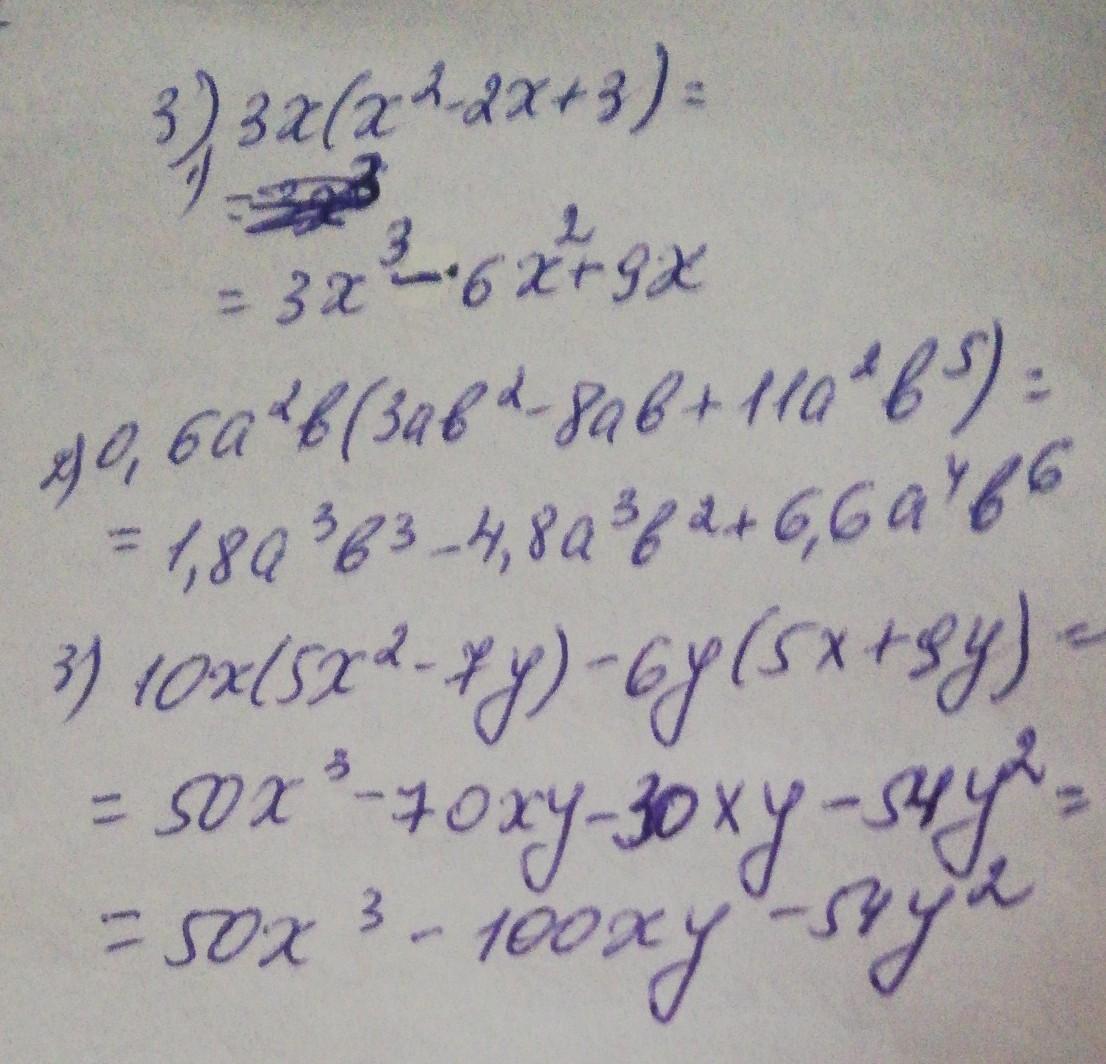 3) 3x(x²-2x+3)=
1) =
= 3x³ - 6x² + 9x
2) 0,6a²b(3ab²-8ab+11a²b⁵)=
= 1,8a³b³ - 4,8a³b² + 6,6a⁴b⁶
3) 10x(5x²-7y)-6y(5x+9y)=
= 50x³-70xy-30xy-54y²=
= 50x³-100xy-54y²